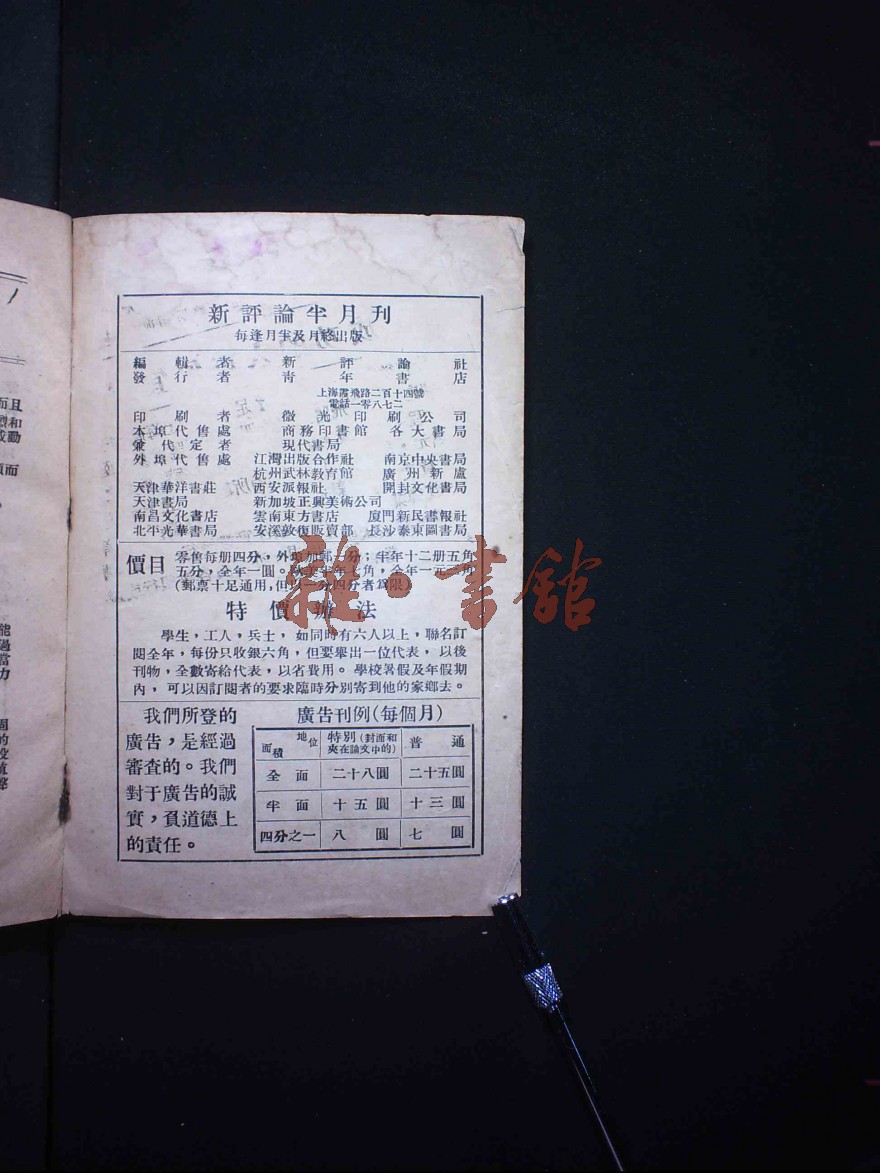 新評論半月刊
每逢月半及月終出版
編輯者 新評論社
發行者 青年書店
上海霞飛路二百十四號
電話一零八七二
印刷者 微光印刷公司
本埠代售處 商務印書館 各大書局
兼代定者 現代書局
外埠代售處 江灣出版合作社 南京中央書局
杭州武林教育館 廣州新盧
天津華洋書莊 西安派報社 開封文化書局
天津書局 新加坡正興美術公司
南昌文化書店 雲南東方書店 廈門新民書報社
北平光華書局 安溪敦復販賣部 長沙泰東圖書局
價目 零售每册四分,外埠加郵一分;半年十二册五角
五分,全年一圓。半年七角,全年一元二角
(郵票十足通用,但以一分四分者爲限)
雜·書館
特價辦法
學生,工人,兵士,如同時有六人以上,聯名訂
閱全年,每份只收銀六角,但要舉出一位代表,以後
刊物,全數寄給代表,以省費用。學校暑假及年假期
內,可以因訂閱者的要求臨時分別寄到他的家鄉去。
我們所登的
廣告,是經過
審查的。我們
對于廣告的誠
實,負道德上
的責任。
廣告刊例(每個月)
地位 面積 特別(封面和夾在論文中的) 普通
全面 二十八圓 二十五圓
半面 十五圓 十三圓
四分之一 八圓 七圓